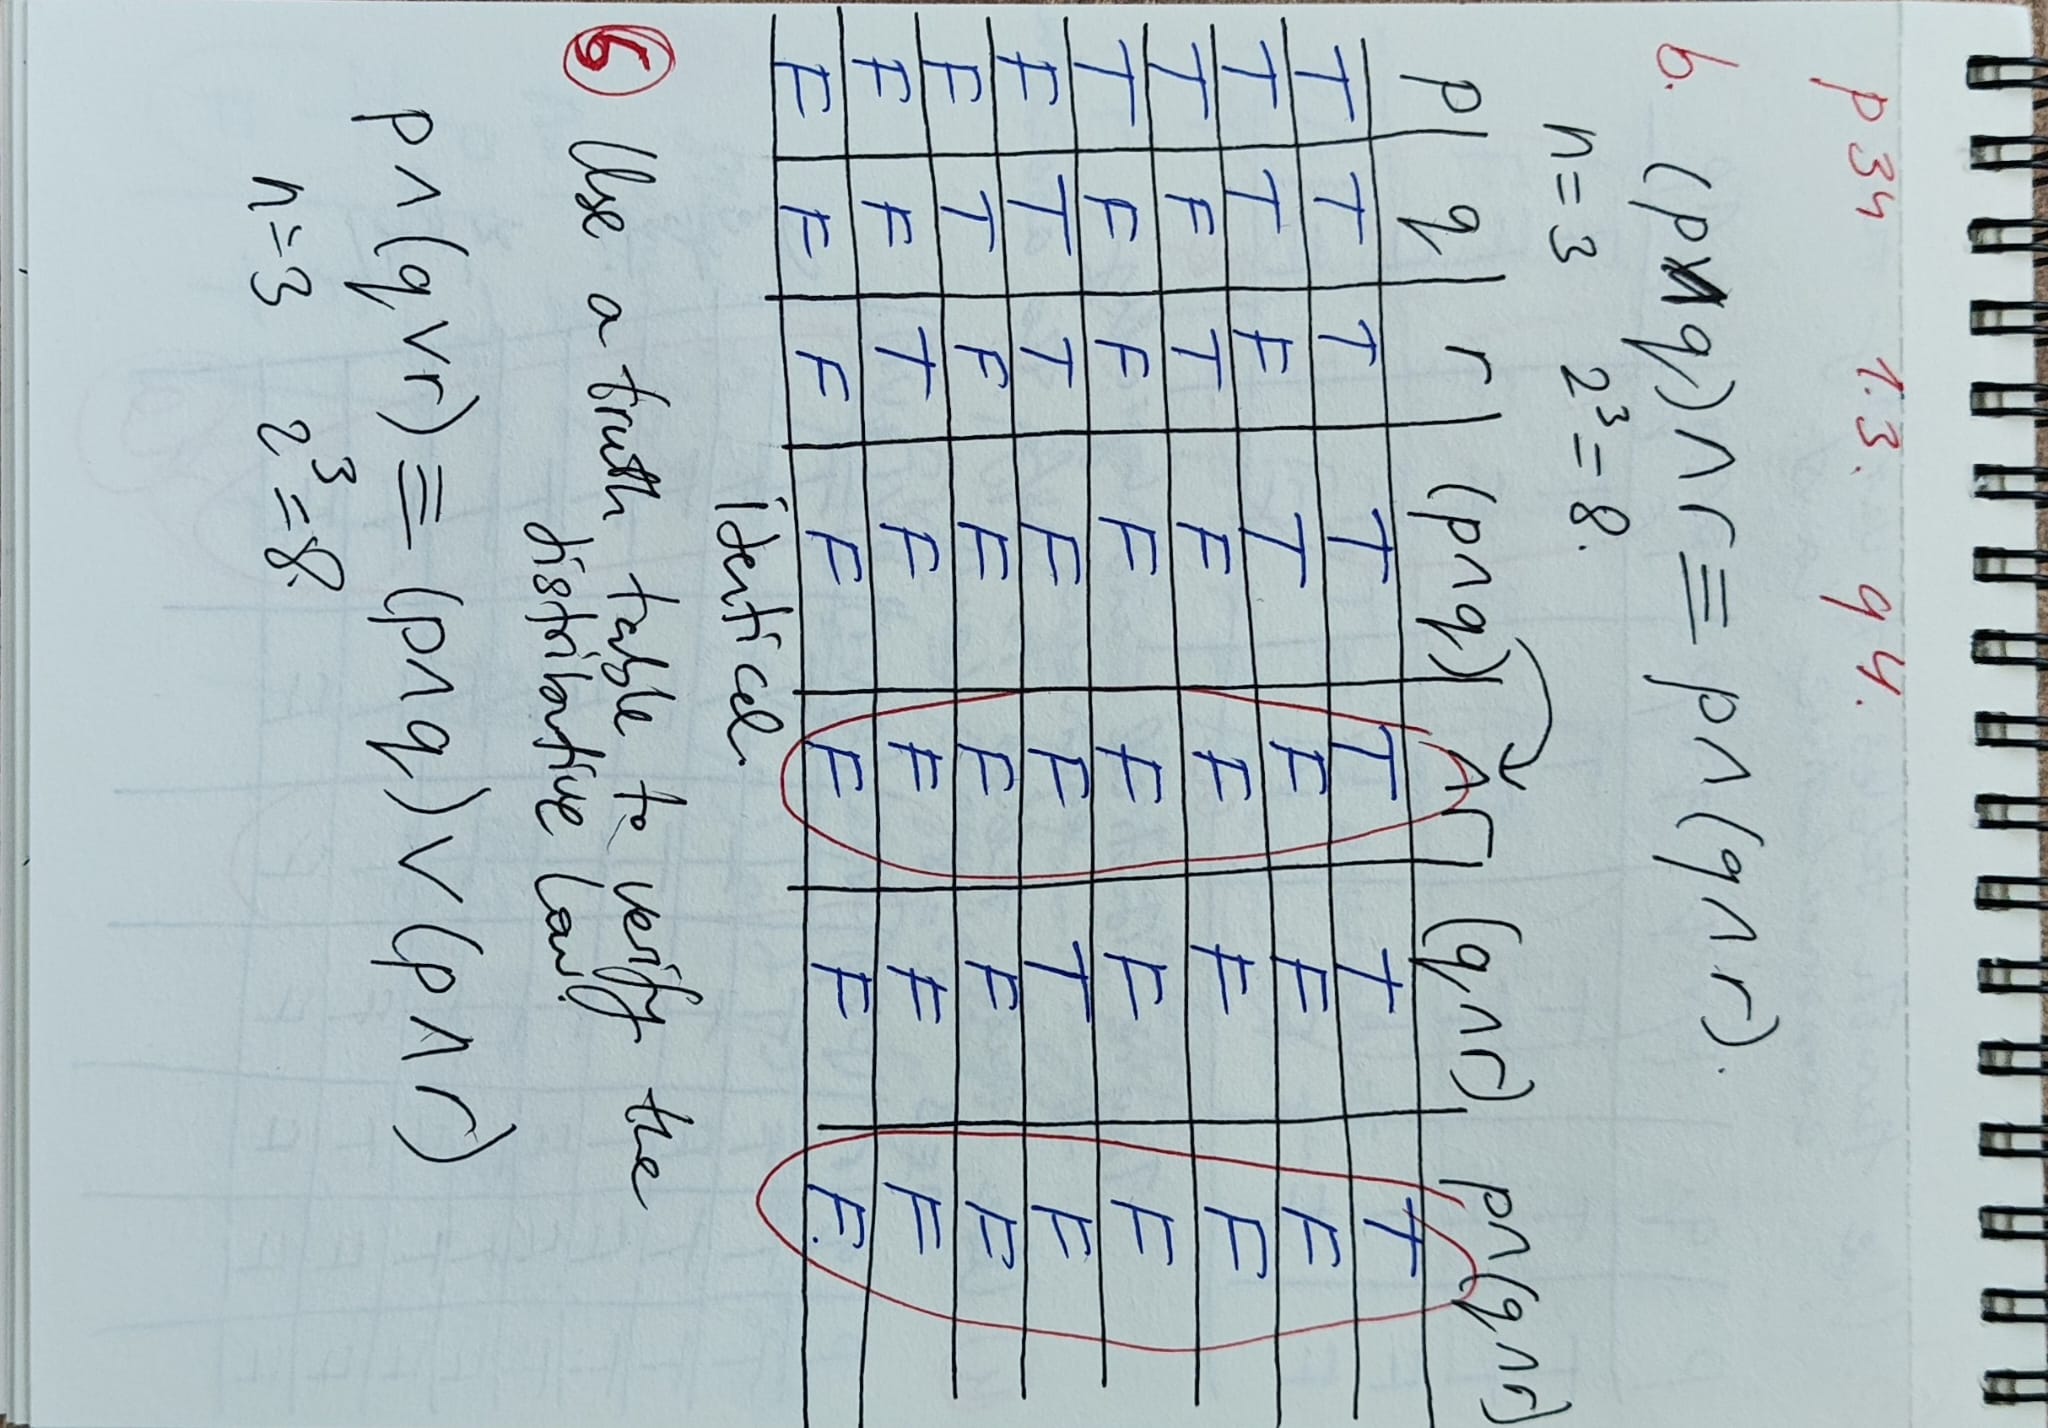 p 34 1.3. q 4.
b. (p∧q)∧r ≡ p∧(q∧r).
n=3 2³=8.
p | q | r | (p∧q) ∧r | (q∧r) p∧(q∧r)
T T T T T T T
T T F T F F F
T F T F F F F
T F F F F F F
F T T F F T F
F T F F F F F
F F T F F F F
F F F F F F F.
identical.
5 Use a truth table to verify the
distributive law.
p∧(q∨r) ≡ (p∧q)∨(p∧r)
n=3 2³=8.